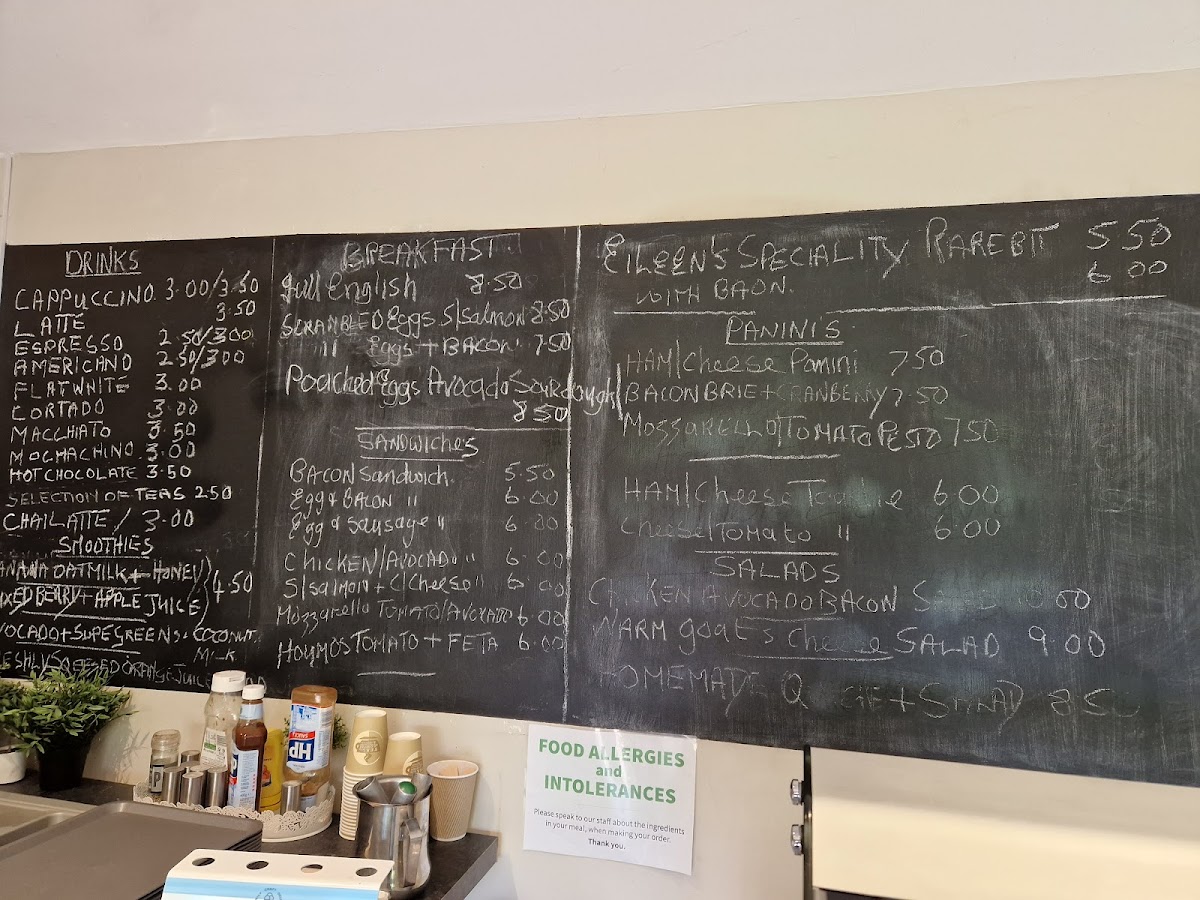 DRINKS
CAPPUCCINO 3.00/3.50
LATTE 3.50
ESPRESSO 2.50/3.00
AMERICANO 2.50/3.00
FLATWHITE 3.00
CORTADO 3.00
MACCHIATO 3.50
MOCHACHINO 3.00
HOT CHOCOLATE 3.50
SELECTION OF TEAS 2.50
CHAI LATTE / 3.00
SMOOTHIES
ANANA OATMILK + HONEY
XED BERRY + APPLE JUICE 4.50
VOCADO + SUPEGREENS + COCONUT
MILK
ESHLY SQEESED ORANGE JUICE
BREAKFAST
full English 8.50
SCRAMBLED Eggs S/Salmon 8.50
" Eggs + BACON 7.50
Poached Eggs Avocado Sourdough
8.50
SANDWICHES
BACON Sandwich 5.50
Egg & BACON " 6.00
Egg & Sausage " 6.00
CHICKEN/AVOCADO " 6.00
S/Salmon + C/Cheese " 6.00
Mozzarella TOMATO/AVOCADO 6.00
HOUMOS TOMATO + FETA 6.00
EILEEN'S SPECIALITY RAREBIT 5.50
WITH BACON. 6.00
PANINI'S
HAM/Cheese Panini 7.50
BACON BRIE + CRANBERRY 7.50
MOZZARELLA/TOMATO PESTO 7.50
HAM/Cheese Toastie 6.00
Cheese/Tomato " 6.00
SALADS
CHICKEN AVOCADO BACON
WARM goat's cheese SALAD 9.00
HOMEMADE Q CHE + SALAD 8.50
HP
FOOD ALLERGIES
and
INTOLERANCES
Please speak to our staff about the ingredients
in your meal, when making your order.
Thank you.